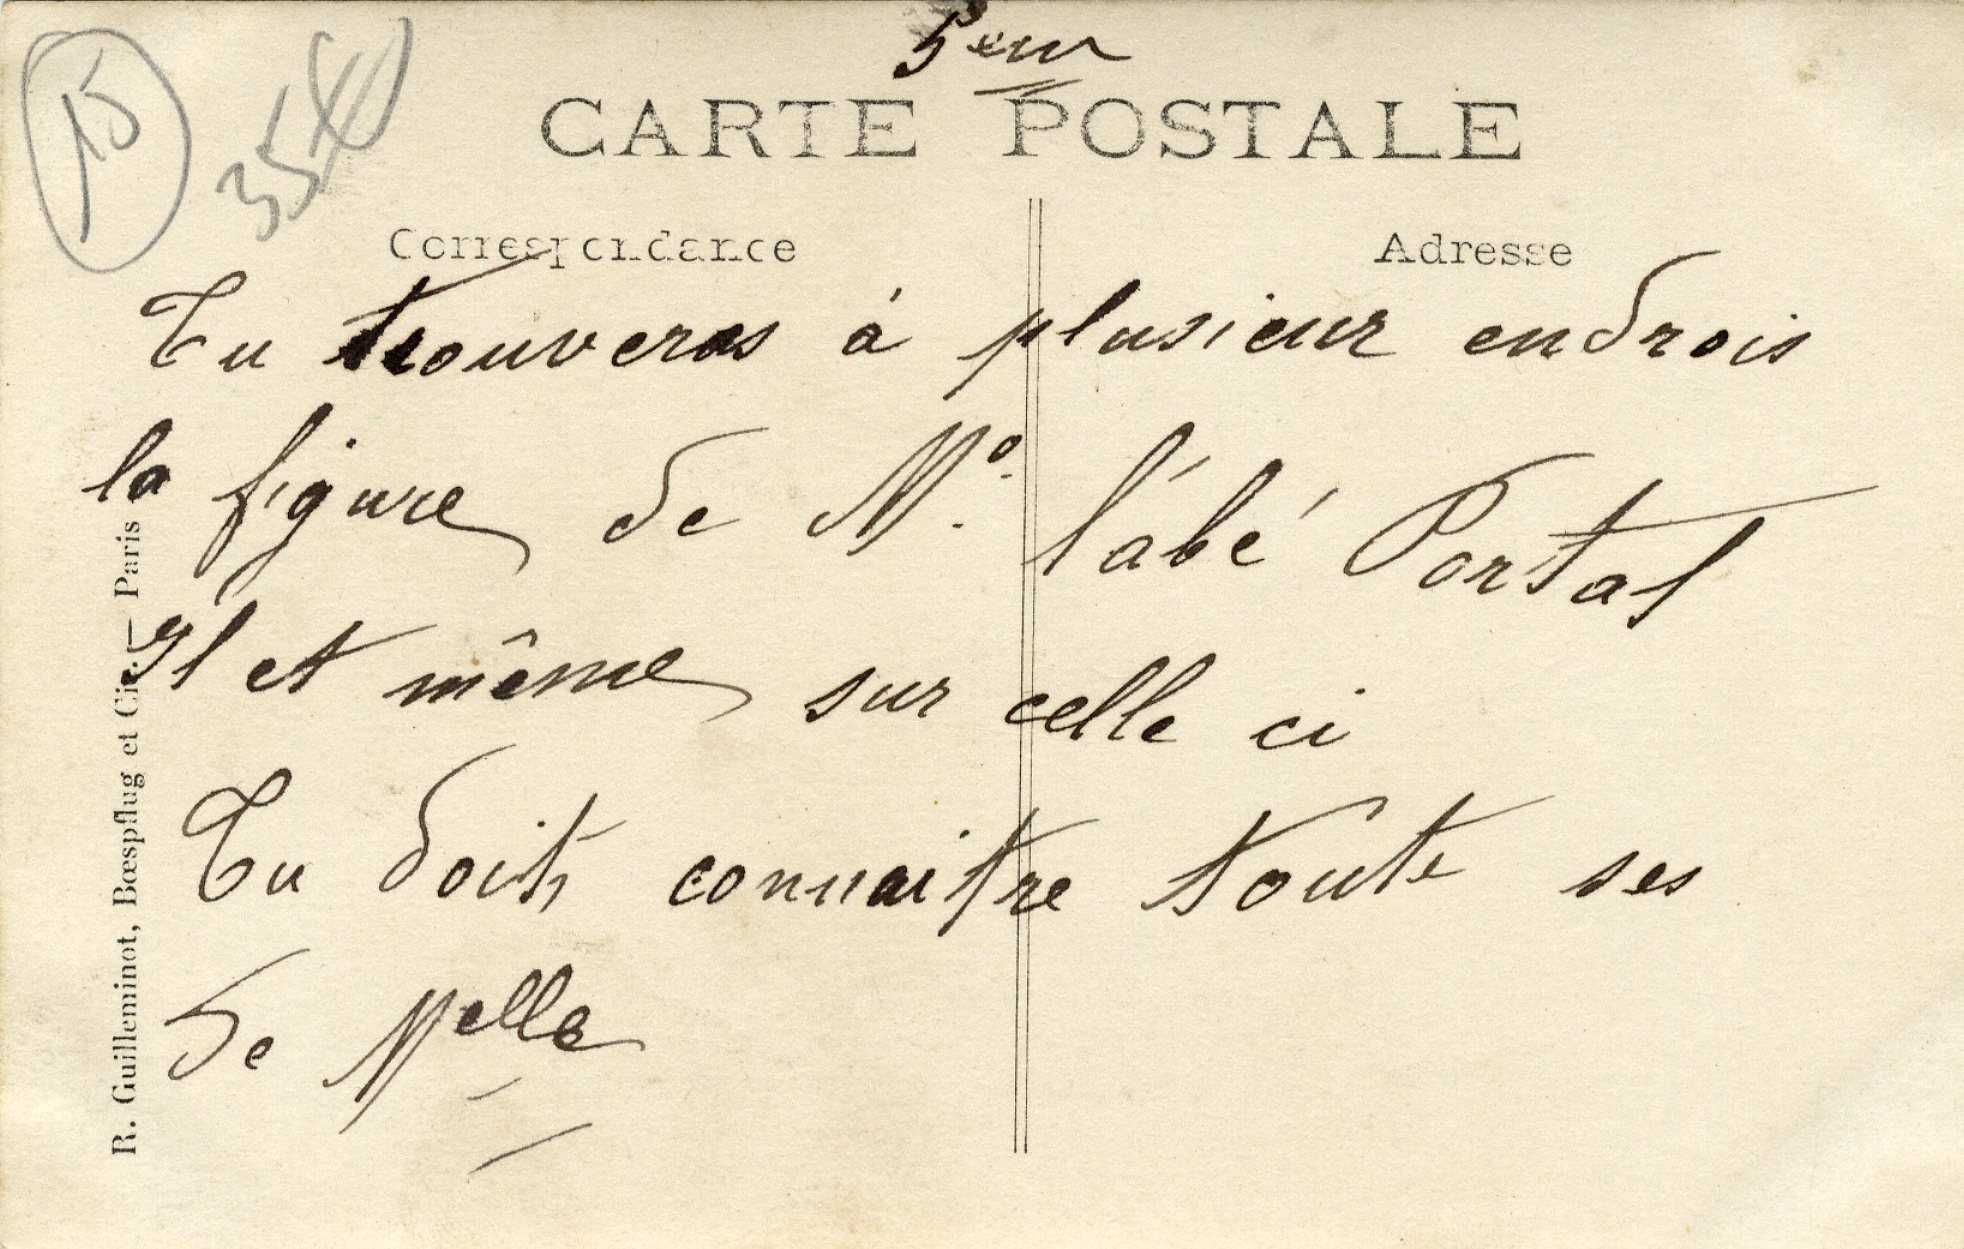 15
35
5ème
CARTE POSTALE
Correspondance
Adresse
Tu trouveras à plusieur endrois
la figure de Mº. l'abé Portal
Il et même sur celle ci
Tu doits connaitre toute ses
de Melle
R. Guilleminot, Bœspflug et Cie. — Paris